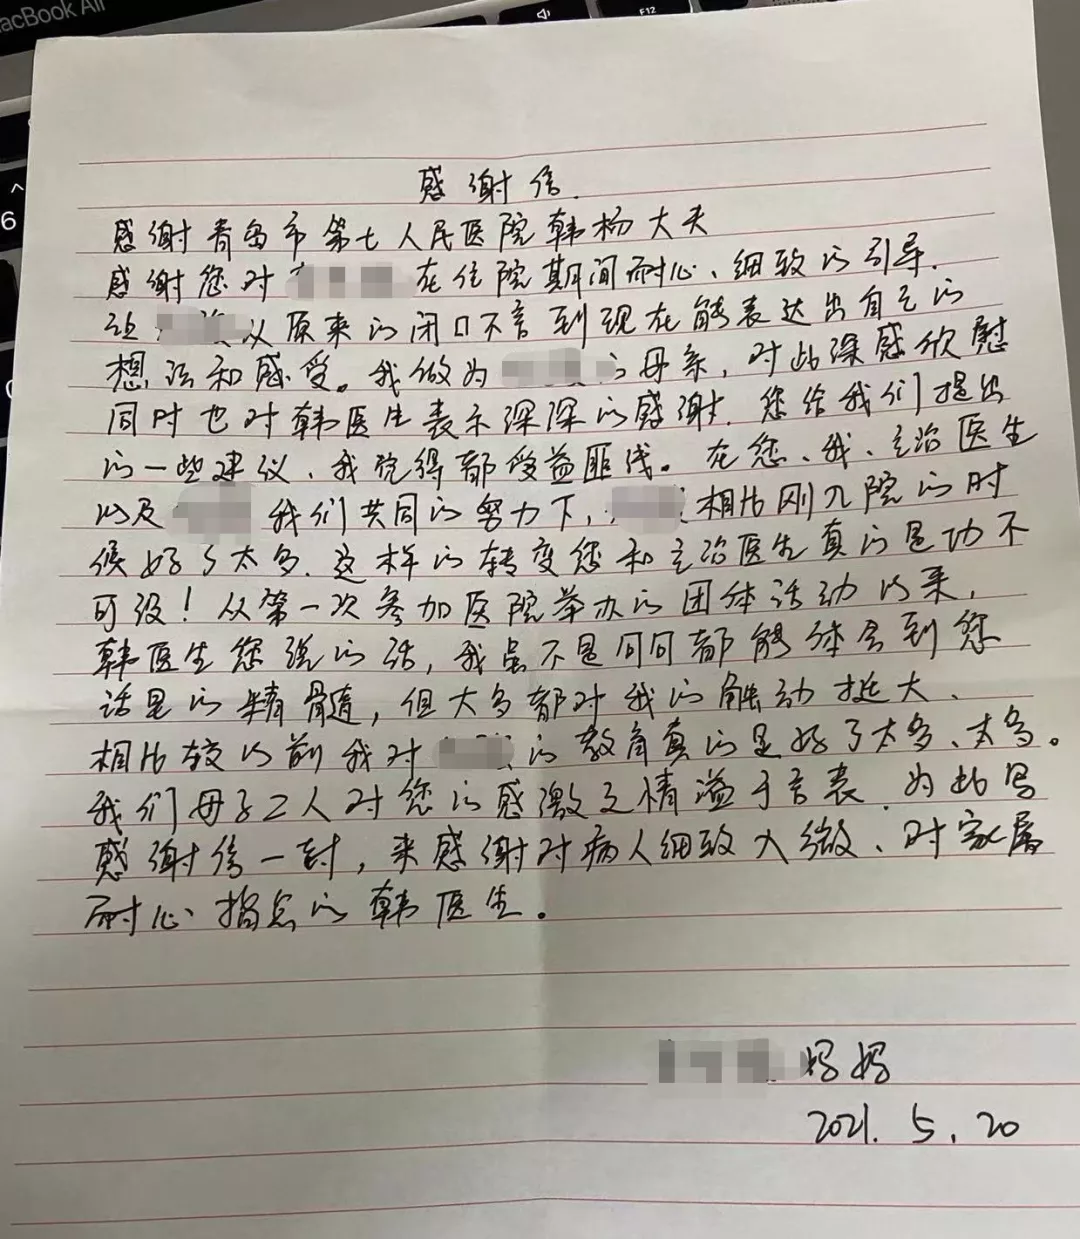 MacBook Air
F12
6
感谢信.
感谢青岛市第七人民医院韩杨大夫
感谢您对 在住院期间耐心、细致的引导.
让 从原来的闭口不言到现在能表达出自己的
想法和感受。我做为 的母亲，对此深感欣慰
同时也对韩医生表示深深的感谢. 您给我们提出
的一些建议、我觉得都受益匪浅。在您、我、主治医生
以及 我们共同的努力下， 相比刚入院的时
候好了太多. 这样的转变您和主治医生真的是功不
可没！从第一次参加医院举办的团体活动以来，
韩医生您说的话，我虽不是句句都能体会到您
话里的精髓，但大多都对我的触动挺大、
相比较以前我对 的教育真的是好了太多、太多。
我们母子二人对您的感激之情溢于言表. 为此写
感谢信一封，来感谢对病人细致入微、对家属
耐心指点的韩医生。
妈妈
2021. 5. 20